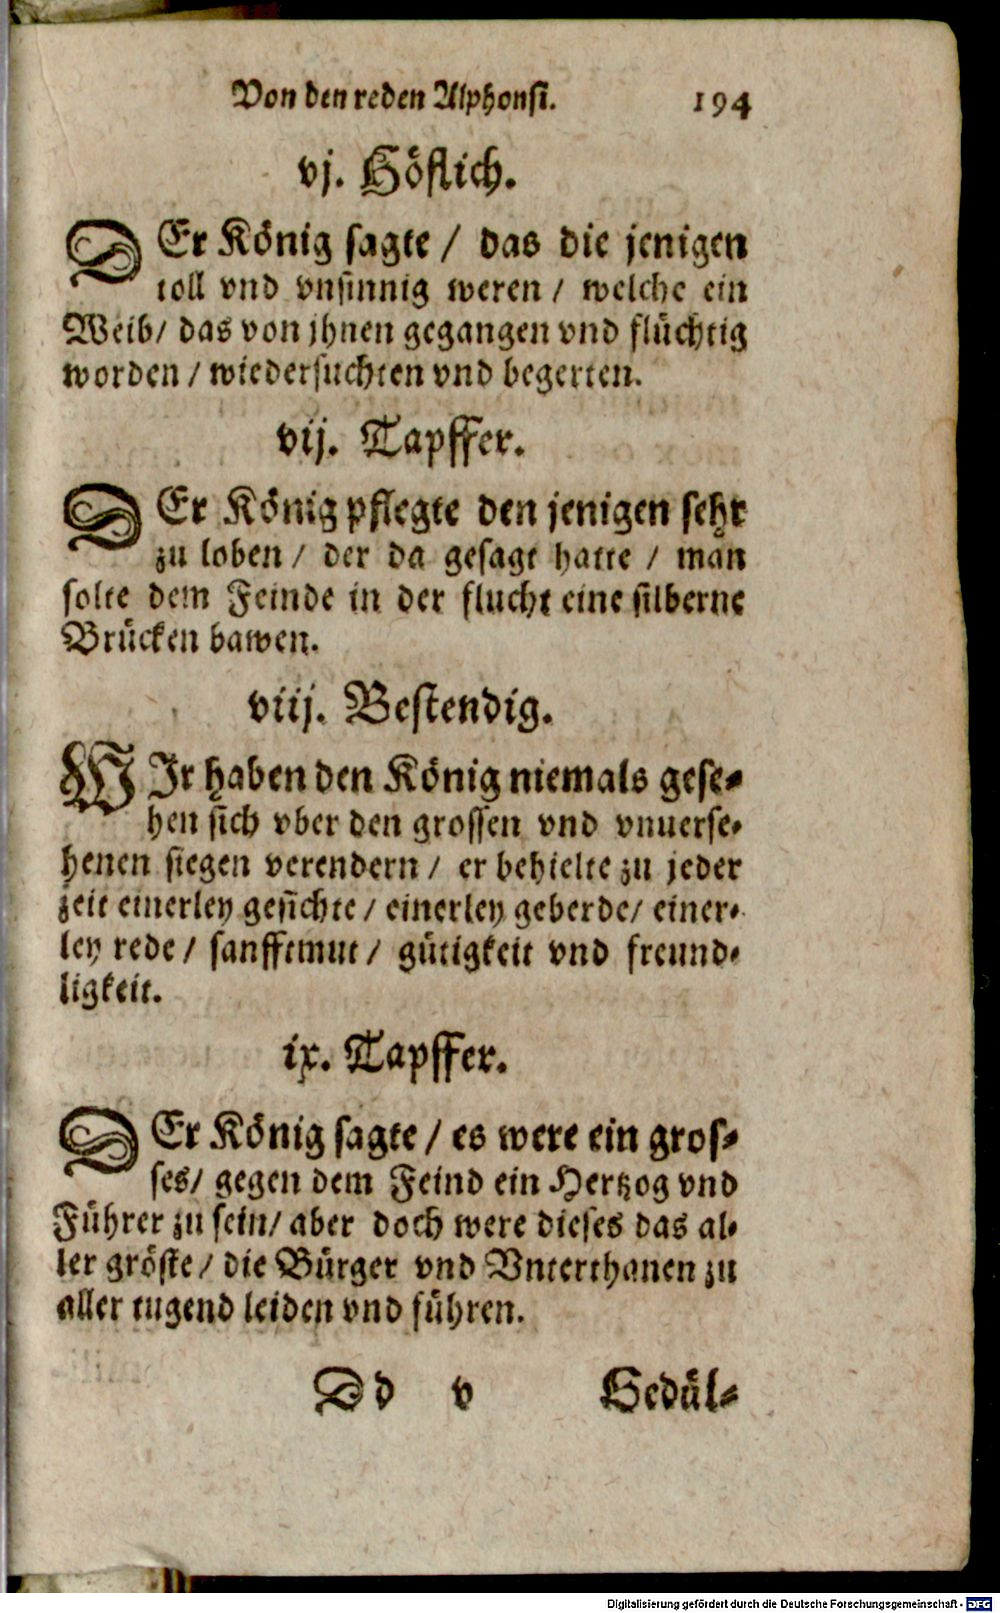 Von den reden Alphonsi. 194
vj. Höflich.
DEr König sagte / das die jenigen
toll vnd vnsinnig weren / welche ein
Weib / das von jhnen gegangen vnd flüchtig
worden / wiedersuchten vnd begerten.
vij. Tapffer.
DEr König pflegte den jenigen sehr
zu loben / der da gesagt hatte / man
solte dem Feinde in der flucht eine silberne
Brücken bawen.
viij. Bestendig.
WIr haben den König niemals gese-
hen sich vber den grossen vnd vnuerse-
henen siegen verendern / er behielte zu jeder
zeit einerley gesichte / einerley geberde / einer-
ley rede / sanfftmut / gütigkeit vnd freund-
ligkeit.
ix. Tapffer.
DEr König sagte / es were ein gros-
ses / gegen dem Feind ein Hertzog vnd
Führer zu sein / aber doch were dieses das al-
ler gröste / die Bürger vnd Vnterthanen zu
aller tugend leiden vnd führen.
Dd v Gedül-
Digitalisierung gefördert durch die Deutsche Forschungsgemeinschaft - DFG